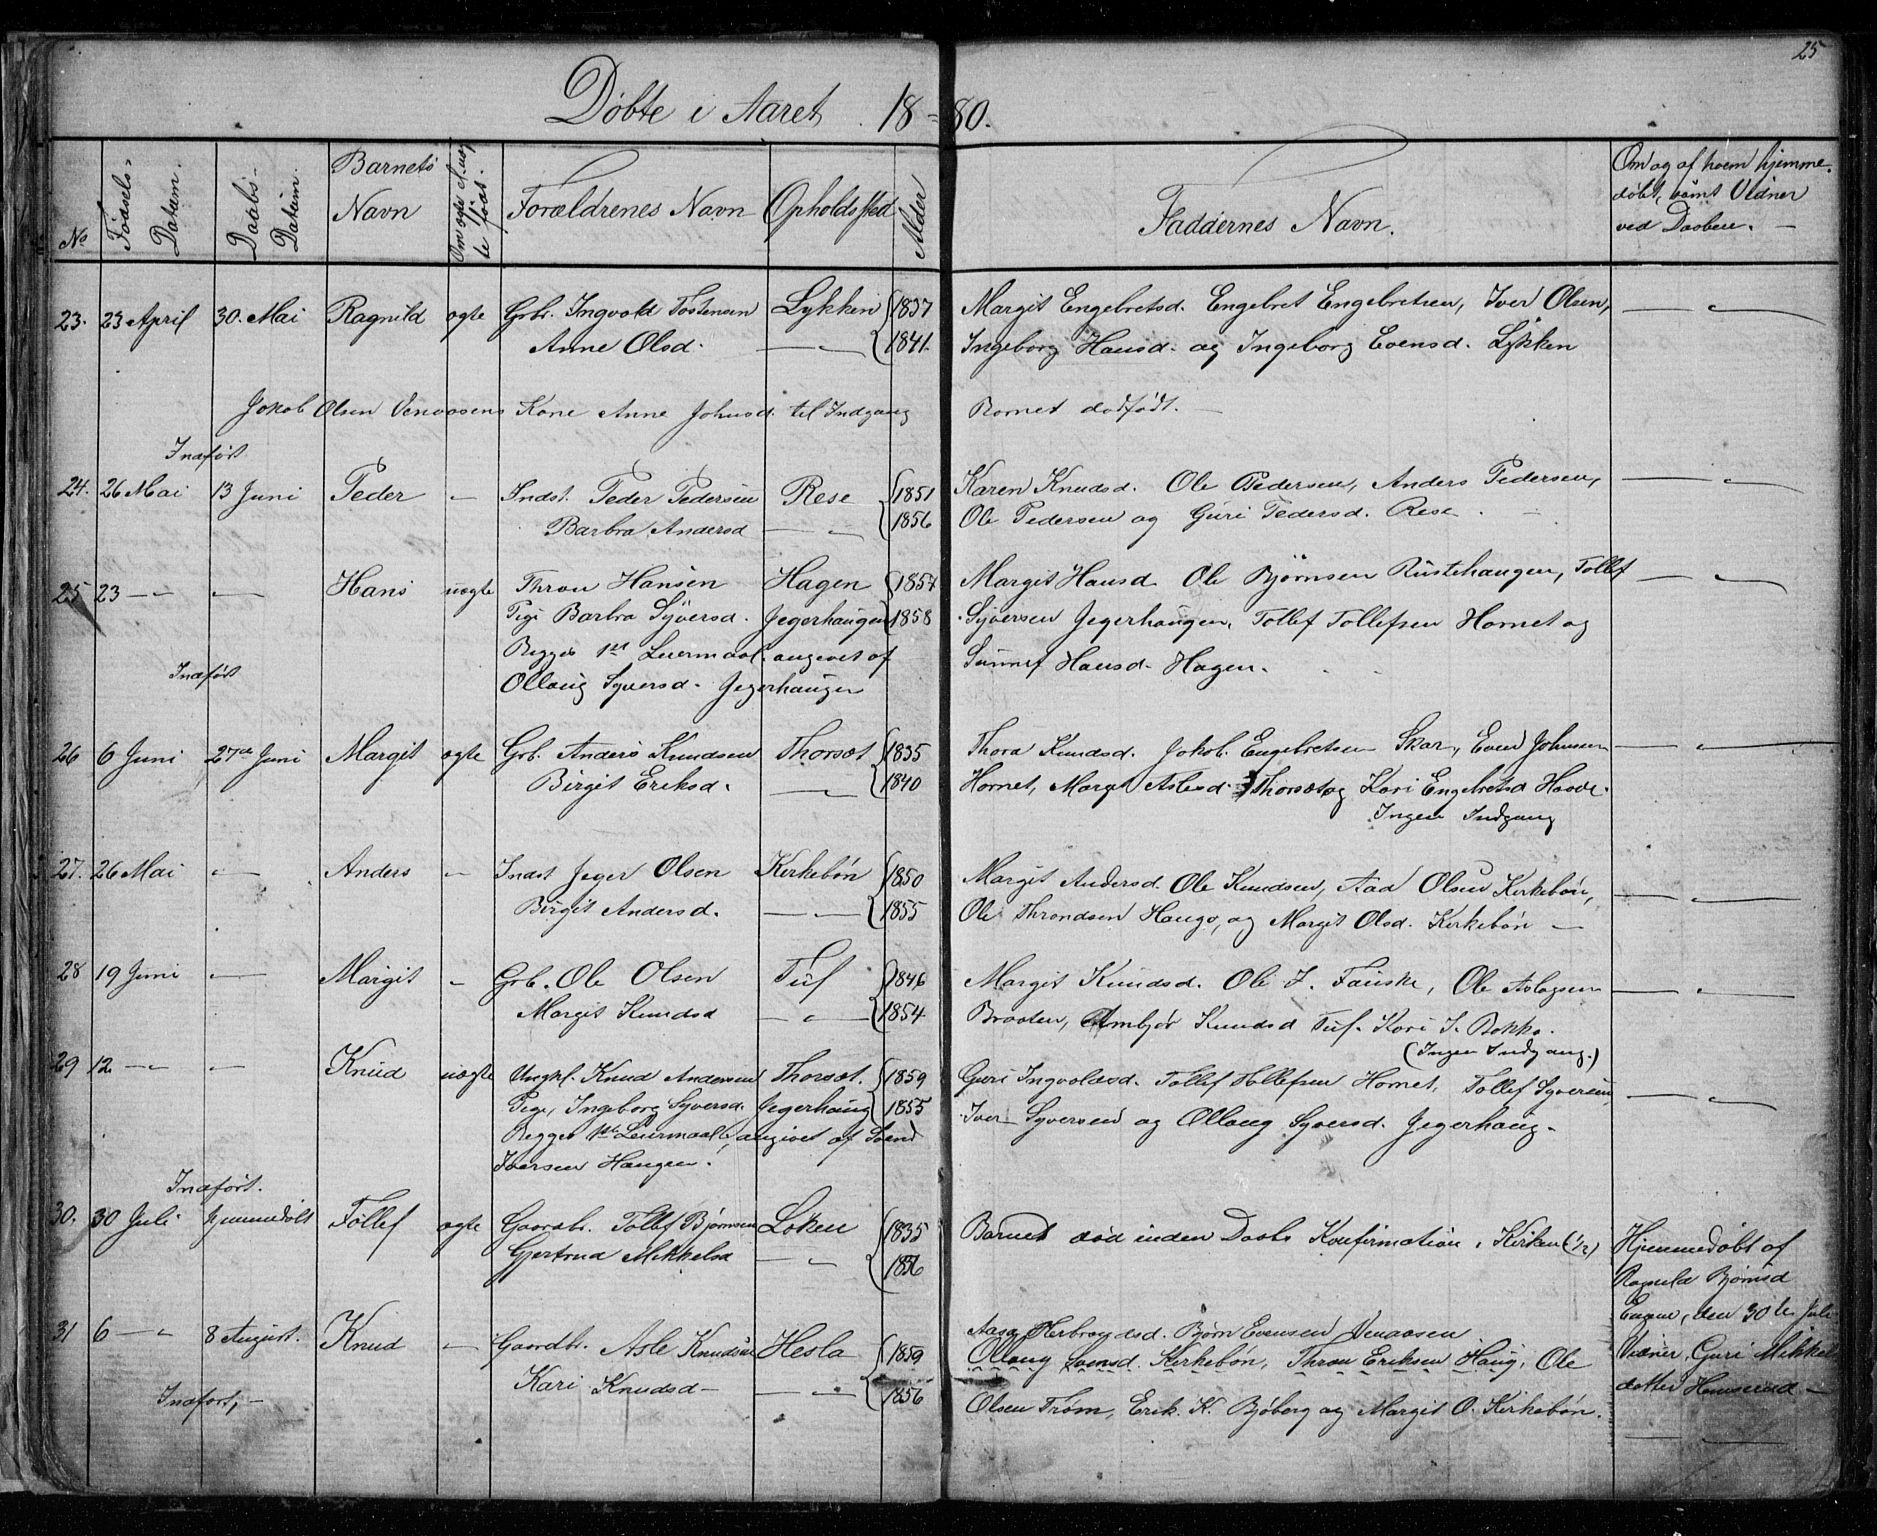 25
Døbte i Aaret 18-80.
No
Fødsels-Datum.
Daabs-Datum.
Barnets Navn
Om ægte el. uægte født.
Forældrenes Navn
Opholdssted
Alder
Faddernes Navn.
Om og af hvem hjemmedøbt, samt Vidner ved Daaben. —
23. 23 April 30. Mai Ragnild ægte Grbr. Ingvold Tostensen Lykken 1837 Margit Engebretsd. Engebret Engebretsen, Iver Olsen, — „ —
Anne Olsd. — „ — 1841. Ingeborg Hansd. og Ingeborg Evensd. Lykken
Jokob Olsen Venaasens Kone Anne Johnsd. til Indgang Barnet dødfødt. —
Indført
24. 26 Mai 13 Juni Peder — Indst. Peder Pedersen Rese 1851 Karen Knudsd. Ole Pedersen, Anders Pedersen, — „ —
Barbra Andersd — „ — 1856 Ole Pedersen og Guri Pedersd. Rese.
25 23 — „ — — „ — Hans uægte Thron Hansen Hagen 1857 Margit Hansd. Ole Bjørnsen Rustehaugen, Tollef — „ —
Pige Barbra Syversd. Jegerhaugen 1858 Syversen Jegerhaugen, Tollef Tollefsen Hornet og
Begges 1st Leiermaal. angivet af Sunnef Hansd. Hagen.
Indført
Ollaug Syversd. Jegerhaugen
26 6 Juni 27de Juni Margit ægte Grb. Anders Knudsen Thorsæt 1835 Thora Knudsd. Jokob. Engebretsen Skar, Even Johnsen — „ —
Birgit Eriksd. — „ — 1840 Hornet, Margit Aslesd. Thorsæt og Kari Engebretsd Hoode.
Ingen Indgang
27. 26 Mai — „ — Anders — Indst Jeger Olsen Kirkebøn 1850 Margit Andersd. Ole Knudsen, Aad Olsen Kirkebøn, — „ —
Birgit Andersd. — „ — 1855 Ole Throndsen Haugo, og Margit Olsd. Kirkebøn —
28 19 Juni — „ — Margit — Grb. Ole Olsen Tuf 1846 Margit Knudsd. Ole I. Fauske, Ole Aslagsen — „ —
Margit Knudsd — „ — 1854 Braaten, Ambjør Knudsd Tuf. Kari I. Bokko.
(Ingen Indgang.)
29 12 — „ — — „ — Knud uægte Ungkl. Knud Andersen Thorsæt. 1859 Guri Ingvoldsd. Tollef Tollefsen Hornet, Tollef Syversen — „ —
Pige, Ingeborg Syversd. Jegerhaug 1855 Iver Syversen og Ollaug Syversd. Jegerhaug.
Begges 1ste Leiermaal, angivet af Svend
Iversen Haugen.
Indført.
30. 30 Juli hjemmedøbt Tollef ægte Gaardbr. Tollef Bjørnsen Løken 1835 Barnet død inden Daabs Konfirmation i Kirken (1/2) Hjemmedøbt af
Gjertrud Mikkelsd — „ — 1836 Ragnild Bjørnsd
Engene, den 30te Juli
31 6 — „ — 8 August. Knud — Gaardbr. Asle Knudsen Hesla 1859 Aasa Herbrandsd. Bjørn Evensen Venaasen Vidner, Guri Mikkels
Ollaug Svensd. Kirkebøn, Thron Eriksen Haug, Ole datter Hansrud —
Kari Knudsd — — „ — 1856 Olsen Trøm, Erik K. Bjøberg og Margit O. Kirkebøn. — „ —
Indført, —